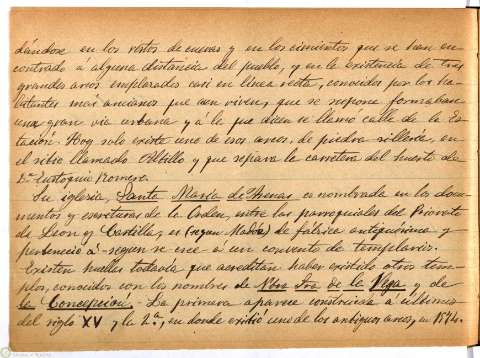 dándose en los restos de cuevas y en los cimientos que se han en
contrado á alguna distancia del pueblo, y en la existencia de tres
grandes arcos emplazados casi en línea recta, conocidos por los ha-
bitantes mas ancianos que aun viven, que se supone formaban
una gran via urbana y á la que dicen se llamó calle de la Es
tación. Hoy solo existe uno de esos arcos, de piedra sillería, en
el sitio llamado Altillo y que separa la carretera del huerto de
Dn. Eustoquio Romero.
Su iglesia, Santa María de Arenas, es nombrada en los docu-
mentos y escrituras de la Orden, entre las parroquiales del Priorato
de Leon y Castilla, es (segun Madoz) de fábrica antiquísima y
perteneció á segun se cree á un convento de templarios.
Existen huellas todavía que acreditan haber existido otros tem
plos, conocidos con los nombres de Ntra Sra de la Vega y de
la Concepcion. La primera aparece construida á últimos
del siglo XV y la 2a, en donde existió uno de los antiguos arcos, en 1574.